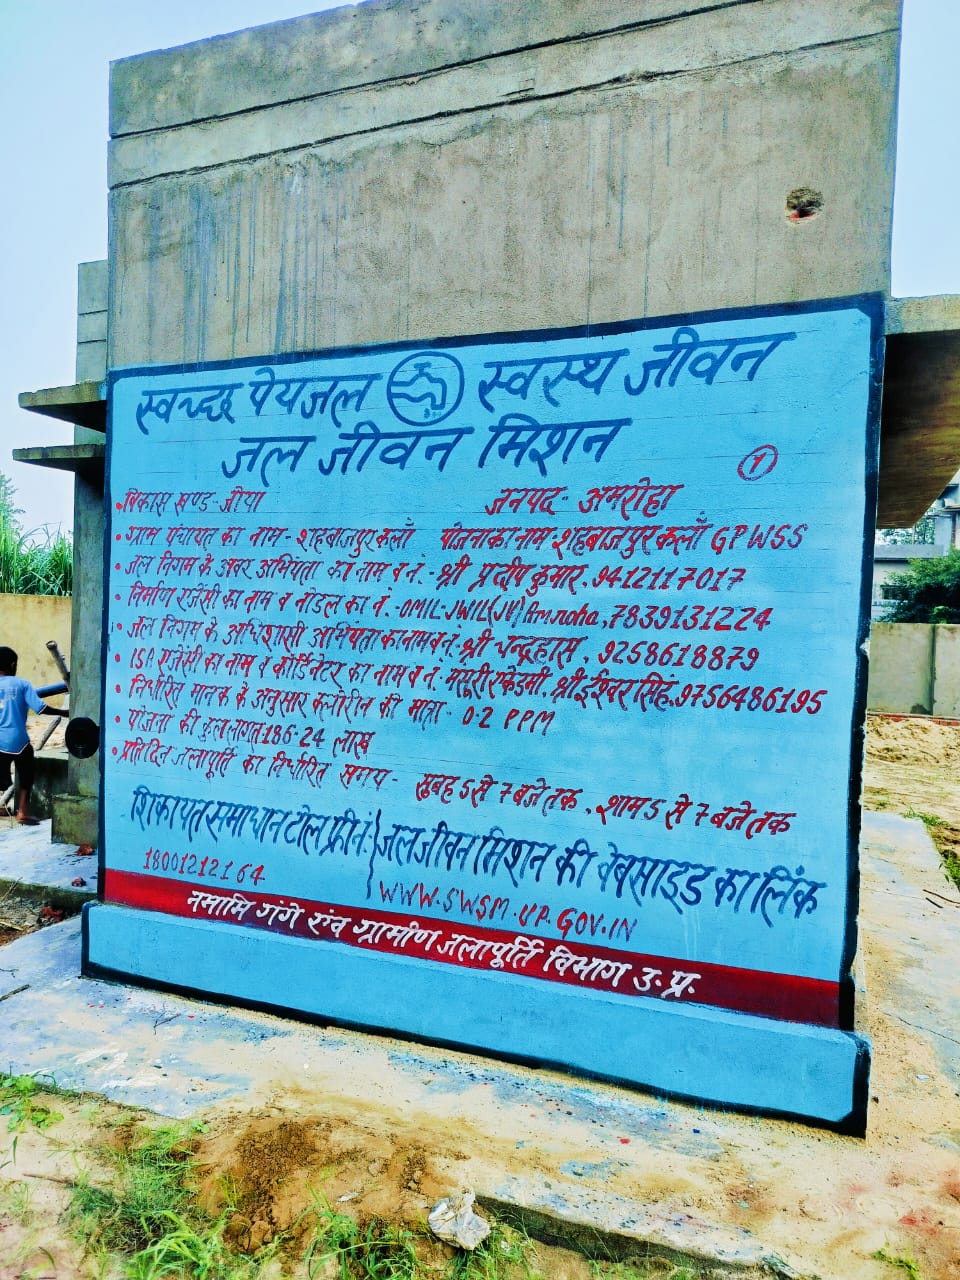 स्वच्छ पेयजल स्वस्थ जीवन
जल जीवन मिशन
1
•विकास खण्ड-जोया जनपद- अमरोहा
•ग्राम पंचायत का नाम- शहबाजपुरकलाँ योजनाकानाम-शहबाजपुरकलाँ GPWSS
•जल निगम के अवर अभियंता का नाम व नं.-श्री प्रदीप कुमार.9412117017
•निर्माण एजेंसी का नाम व नोडल का नं.-OMIL-JWIL(JV)Amroha,7839131224
•जल निगम के अधिशासी अभियंताकानामवनं-श्री चन्द्रहास . 9258618879
•ISA एजेंसी का नाम व कोर्डिनेटर का नाम व नं.-मंसूरी एकेडमी.श्री ईश्वर सिंह.9756486195
•निर्धारित मानक के अनुसार क्लोरीन की मात्रा- 0.2 PPM
•योजना की कुल लागत-186.24 लाख
•प्रतिदिन जलापूर्ति का निर्धारित समय- सुबह 5 से 7 बजे तक , शाम 5 से 7 बजे तक
शिकायत समाधान टोल फ्री नं.
18001212164
जल जीवन मिशन की वेबसाइड का लिंक
WWW.SWSM.UP.GOV.IN
नमामि गंगे एंव ग्रामीण जलापूर्ति विभाग उ.प्र.